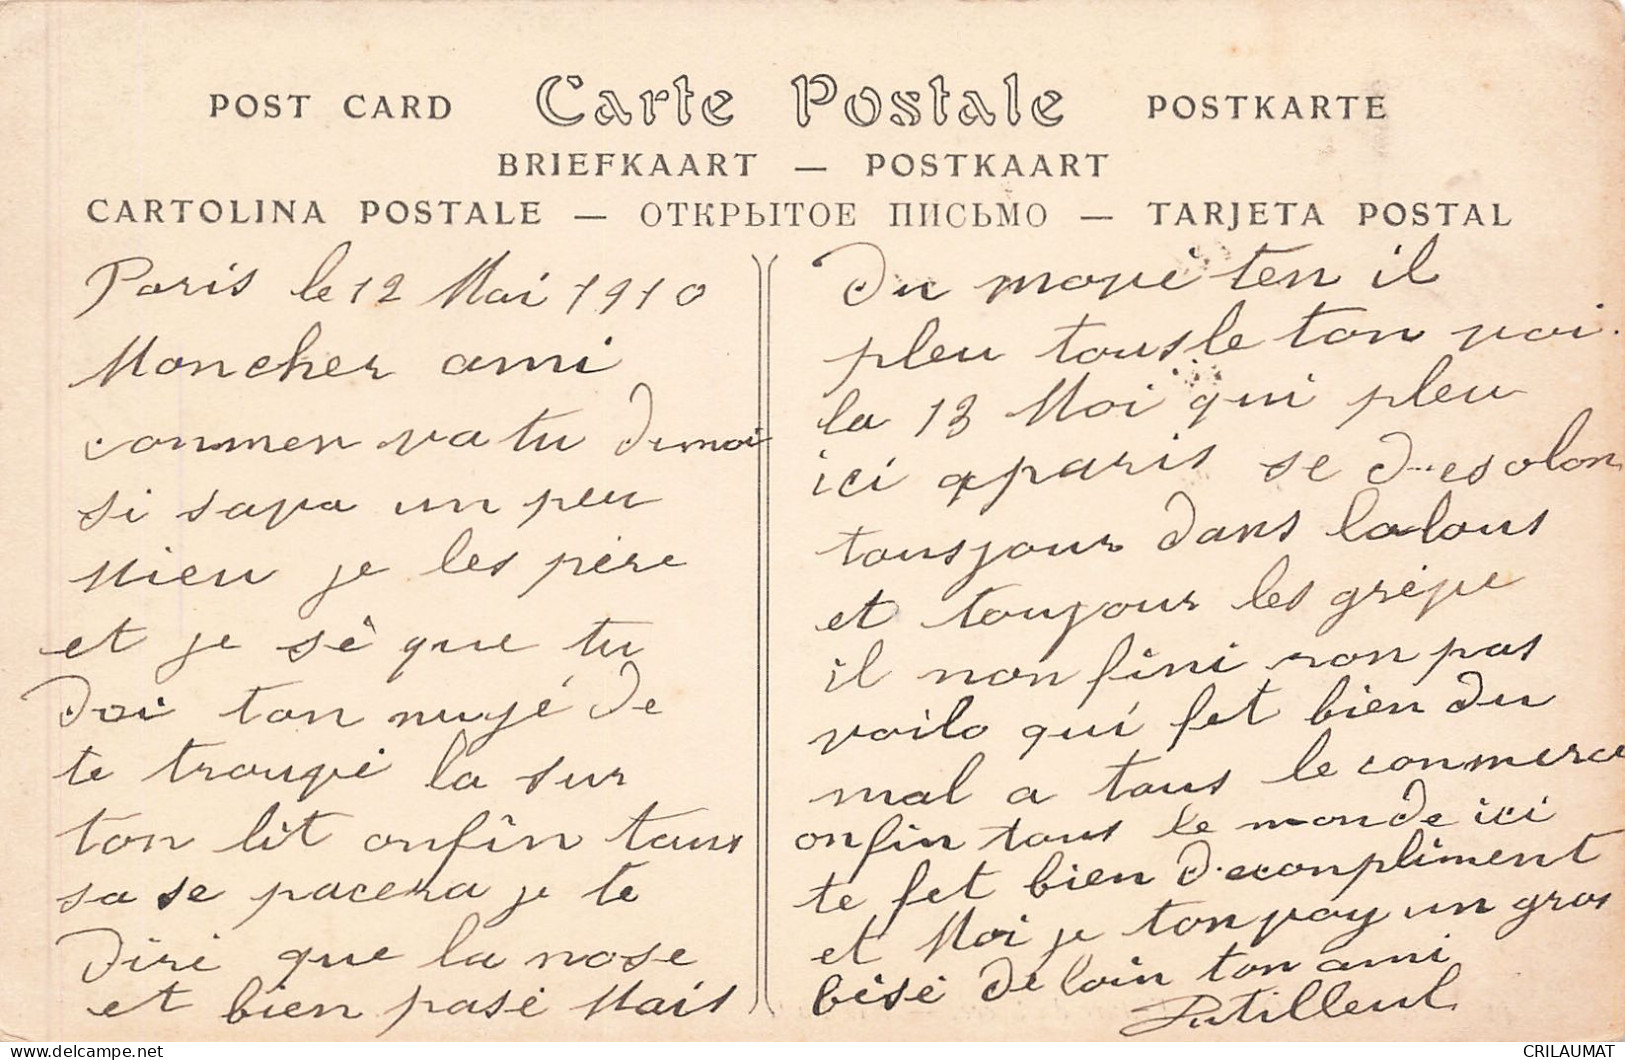 POST CARD Carte Postale POSTKARTE
BRIEFKAART — POSTKAART
CARTOLINA POSTALE — ОТКРЫТОЕ ПИСЬМО — TARJETA POSTAL
Paris le 12 Mai 1910
Moncher ami
conmen va tu Dumoi
si sava un peu
Mieu je les père
et je sè que tu
Doi ton nuyé De
te trouvé la sur
ton lit onfin tous
sa se pacera je te
Diré que la nose
et bien pasé Mais
Du mové ten il
pleu tousle ton voi.
la 13 Moi qui pleu
ici aparis se Desolon
tousjour dans lalous
et toujour les grèpe
il non fini ron pas
voilo qui fet bien Du
mal a tous le conmerce
onfin tous le monde ici
te fet bien Deconpliment
et Moi je tonvoy un gros
bésé De loin ton ami
Putilleul
CRILAUMAT